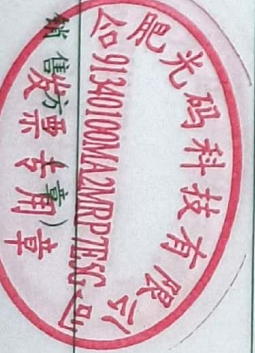 合肥光码科技有限公司
91340100MA2MRP7E5G
发票专用章
销售方:(章)